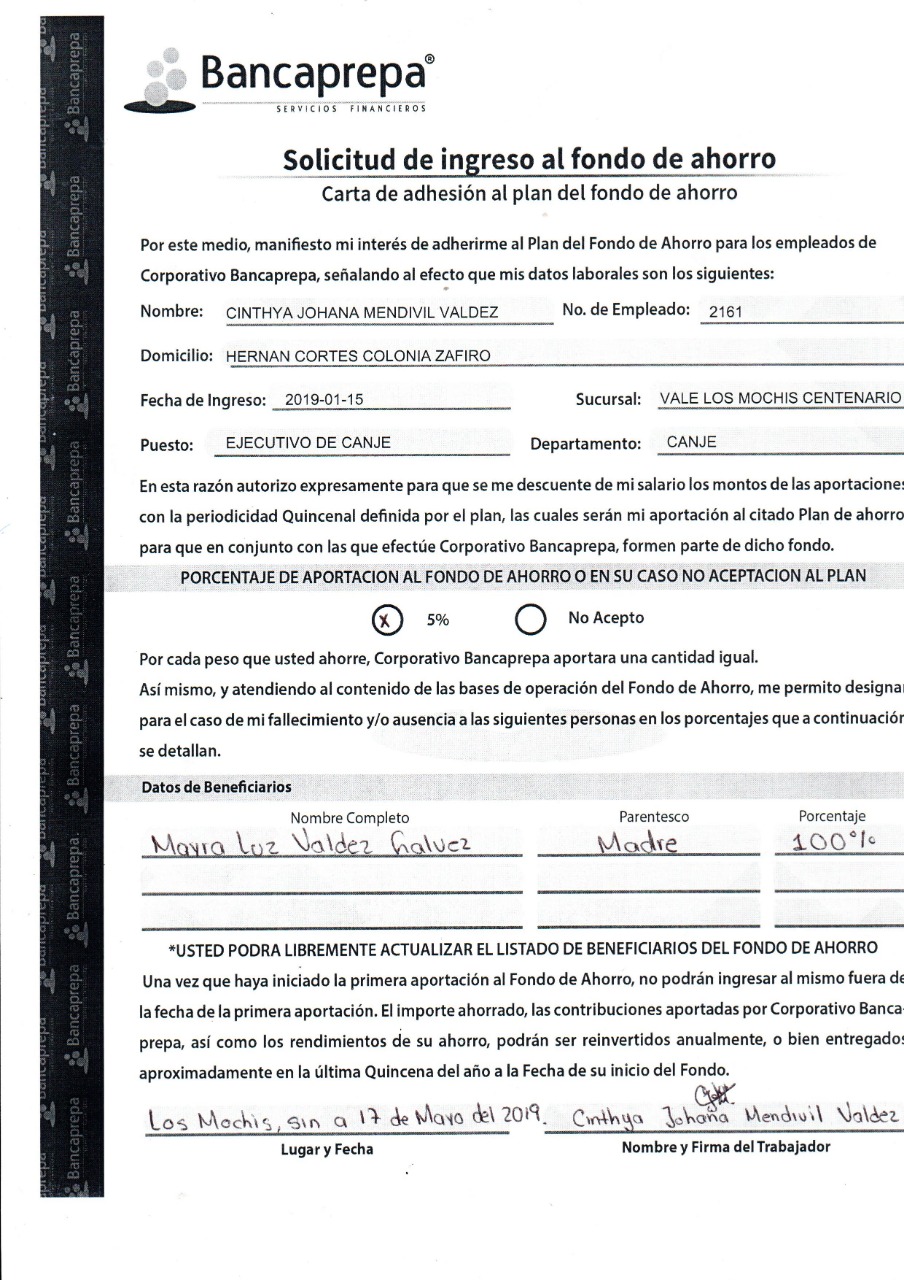 Bancaprepa®
SERVICIOS FINANCIEROS
Solicitud de ingreso al fondo de ahorro
Carta de adhesión al plan del fondo de ahorro
Por este medio, manifiesto mi interés de adherirme al Plan del Fondo de Ahorro para los empleados de
Corporativo Bancaprepa, señalando al efecto que mis datos laborales son los siguientes:
Nombre: CINTHYA JOHANA MENDIVIL VALDEZ No. de Empleado: 2161
Domicilio: HERNAN CORTES COLONIA ZAFIRO
Fecha de Ingreso: 2019-01-15 Sucursal: VALE LOS MOCHIS CENTENARIO
Puesto: EJECUTIVO DE CANJE Departamento: CANJE
En esta razón autorizo expresamente para que se me descuente de mi salario los montos de las aportaciones
con la periodicidad Quincenal definida por el plan, las cuales serán mi aportación al citado Plan de ahorro
para que en conjunto con las que efectúe Corporativo Bancaprepa, formen parte de dicho fondo.
PORCENTAJE DE APORTACION AL FONDO DE AHORRO O EN SU CASO NO ACEPTACION AL PLAN
x 5% No Acepto
Por cada peso que usted ahorre, Corporativo Bancaprepa aportara una cantidad igual.
Así mismo, y atendiendo al contenido de las bases de operación del Fondo de Ahorro, me permito designar
para el caso de mi fallecimiento y/o ausencia a las siguientes personas en los porcentajes que a continuación
se detallan.
Datos de Beneficiarios
Nombre Completo Parentesco Porcentaje
Mayra Luz Valdez Galvez Madre 100%
*USTED PODRA LIBREMENTE ACTUALIZAR EL LISTADO DE BENEFICIARIOS DEL FONDO DE AHORRO
Una vez que haya iniciado la primera aportación al Fondo de Ahorro, no podrán ingresar al mismo fuera de
la fecha de la primera aportación. El importe ahorrado, las contribuciones aportadas por Corporativo Banca-
prepa, así como los rendimientos de su ahorro, podrán ser reinvertidos anualmente, o bien entregados
aproximadamente en la última Quincena del año a la Fecha de su inicio del Fondo.
Los Mochis, sin a 17 de Mayo del 2019. Cinthya Johana Mendivil Valdez
Lugar y Fecha Nombre y Firma del Trabajador